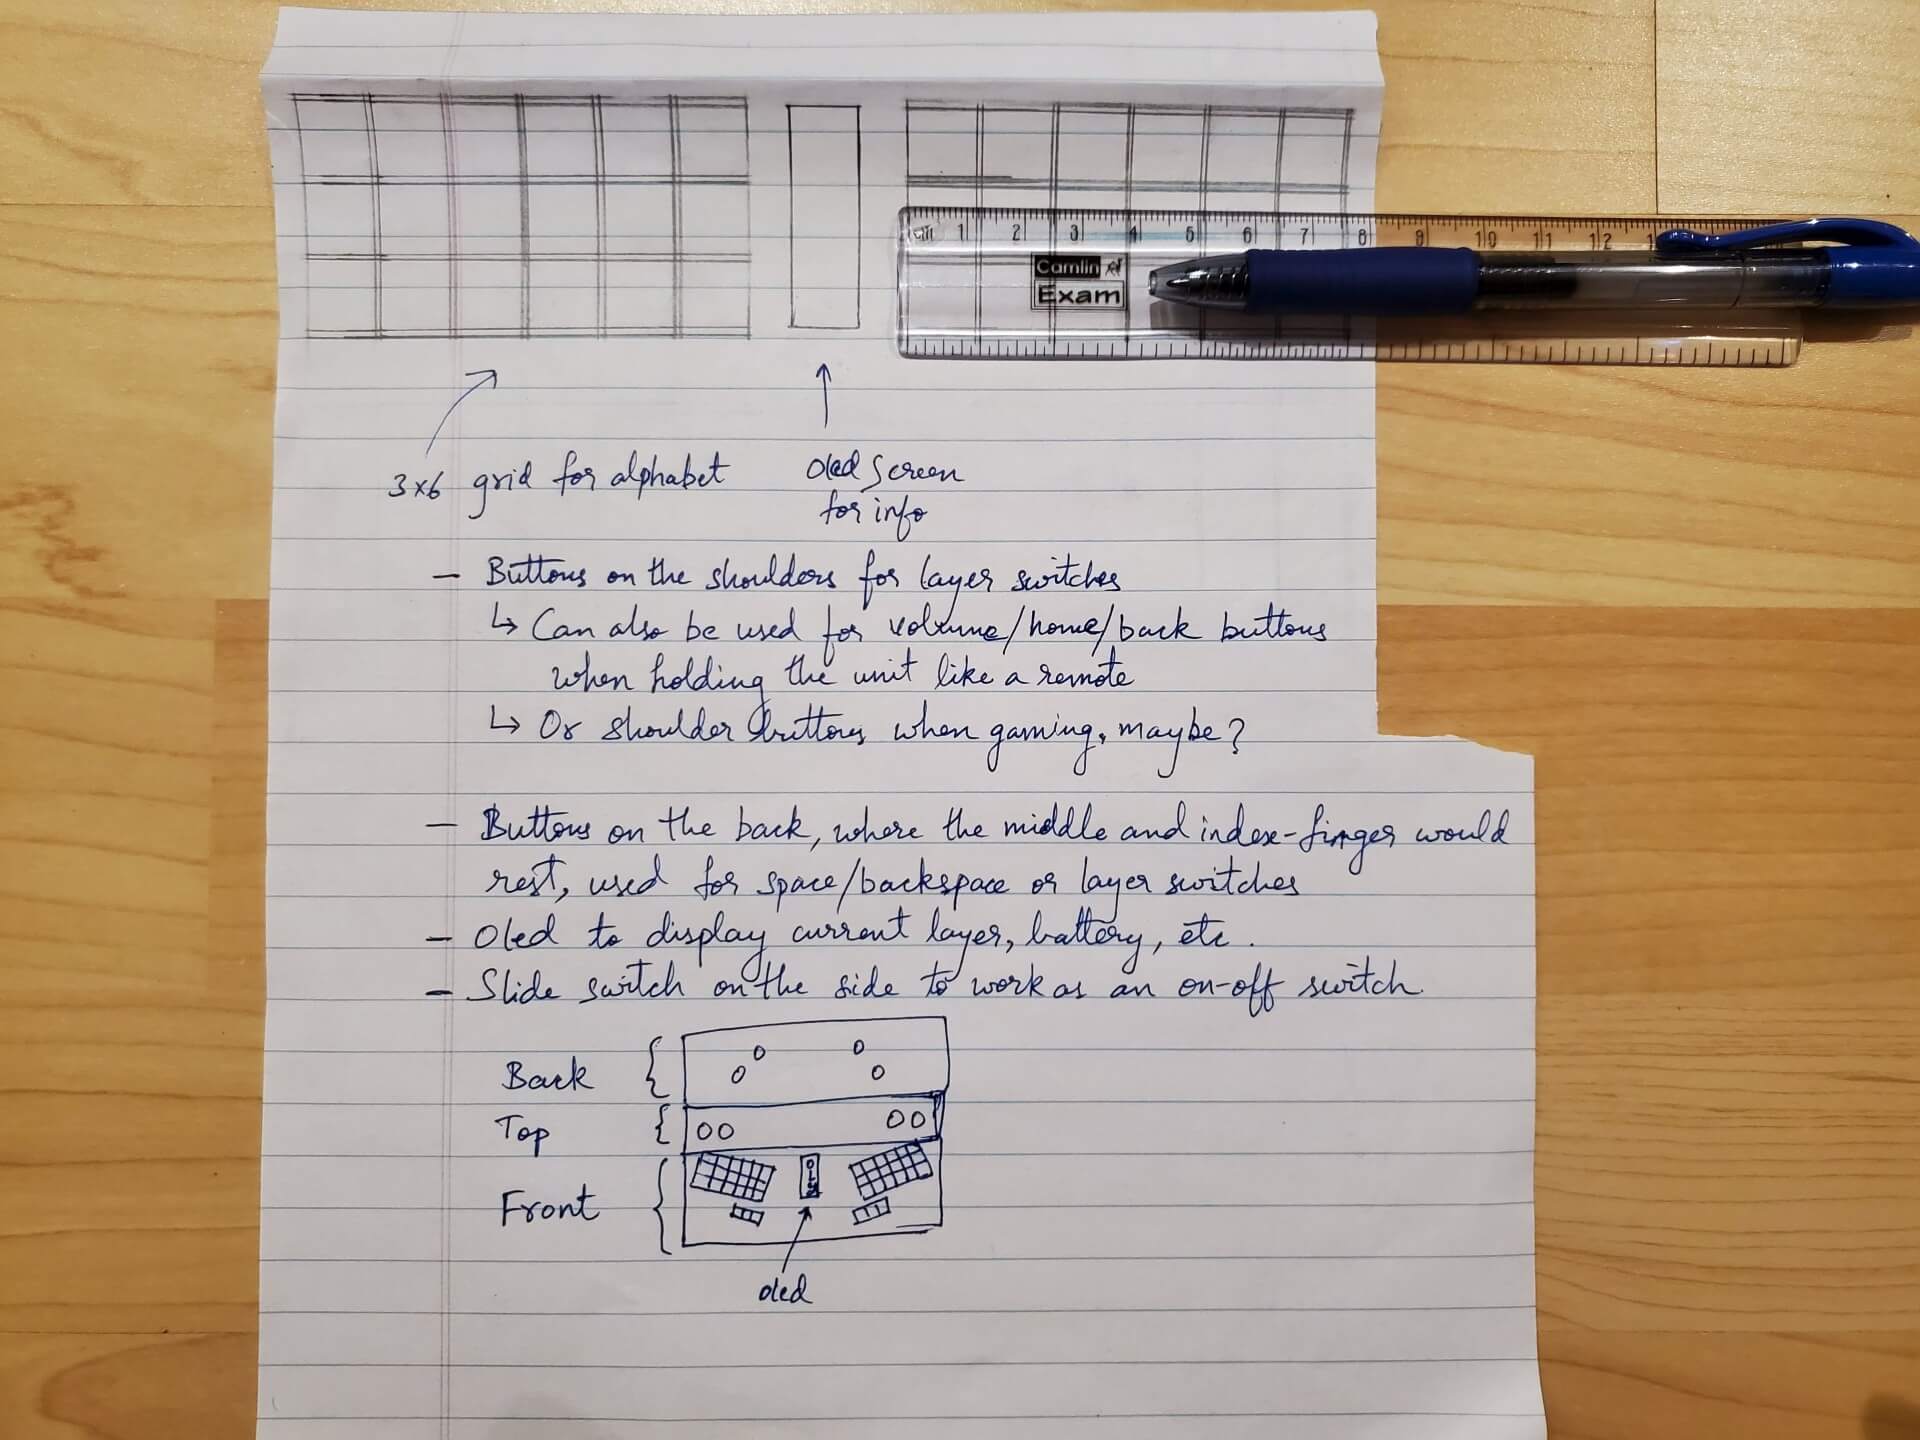 cm 1 2 3 4 5 6 7 8 9 10 11 12
Camlin
Exam
3x6 grid for alphabet
Oled Screen
for info
- Buttons on the shoulders for layer switches
↳ Can also be used for volume/home/back buttons
when holding the unit like a remote
↳ Or shoulder buttons when gaming, maybe?
- Buttons on the back, where the middle and index-finger would
rest, used for space/backspace or layer switches
- Oled to display current layer, battery, etc.
- Slide switch on the side to work as an on-off switch.
Back
Top
Front
OLED
oled